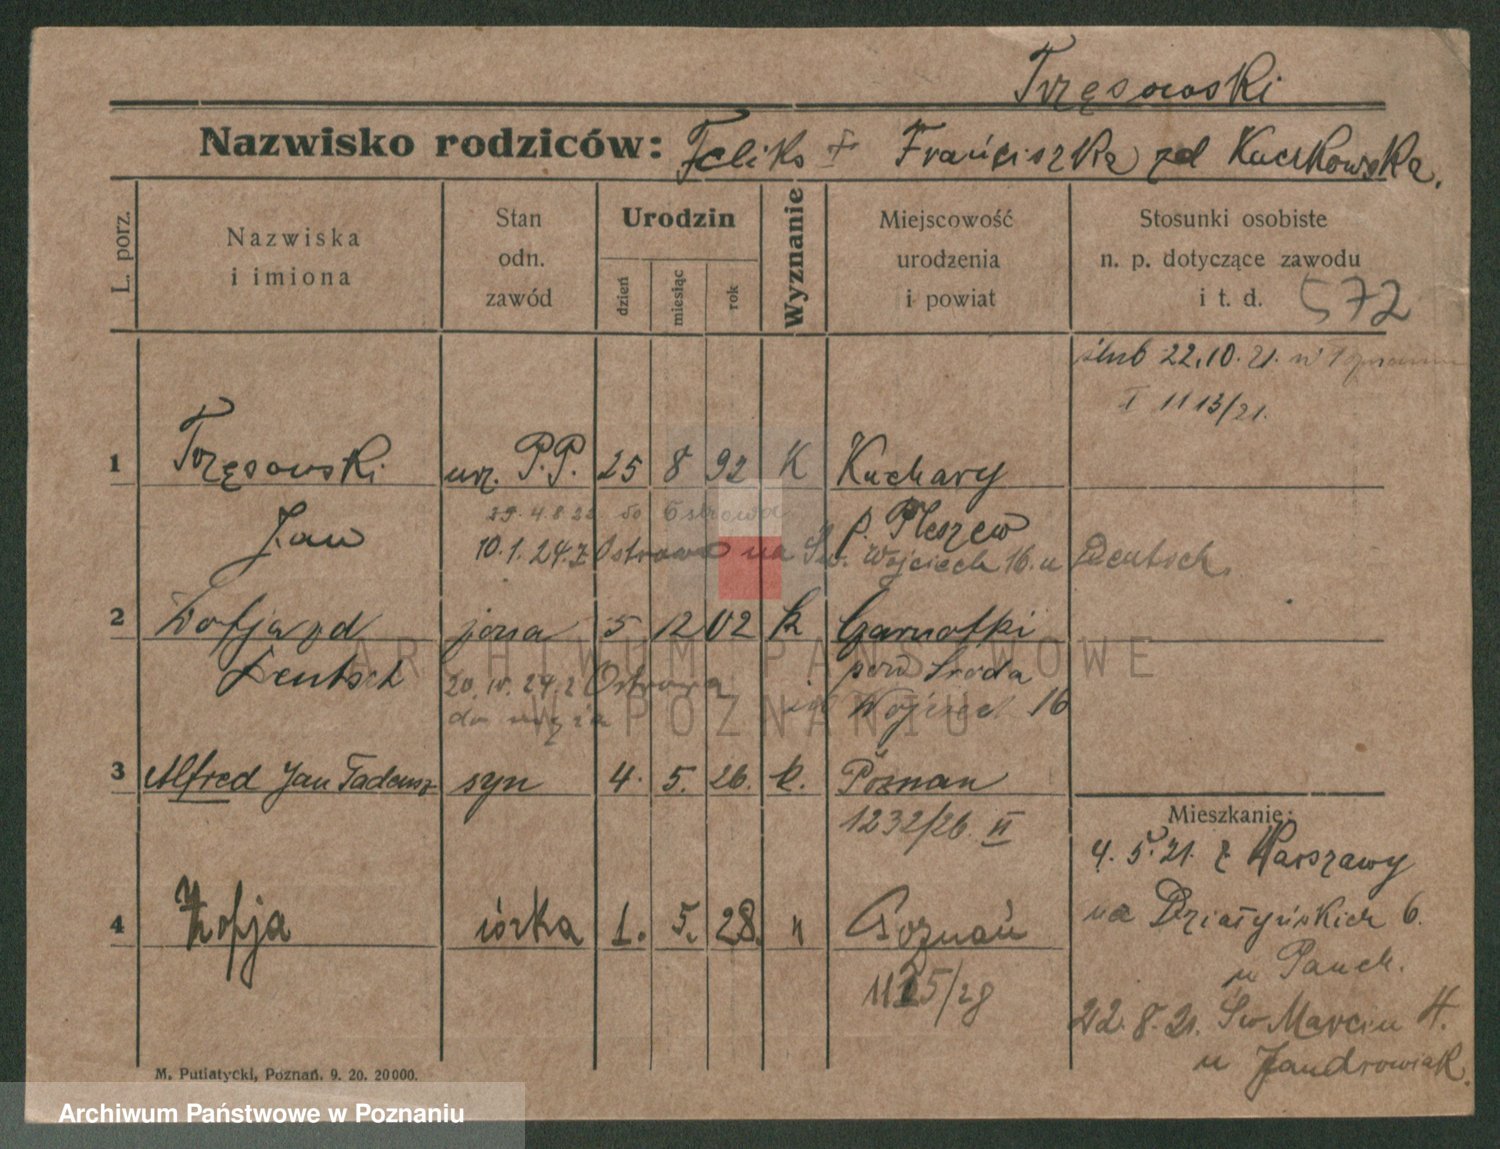 Trzęsowski
Nazwisko rodziców: Feliks + Franciszka zd Kuczkowska.
L. porz.
Nazwiska
i imiona
Stan
odn.
zawód
Urodzin
dzień
miesiąc
rok
Wyznanie
Miejscowość
urodzenia
i powiat
Stosunki osobiste
n. p. dotyczące zawodu
i t. d. 572
ślub 22.10.21. w
I 1113/21.
1 Trzęsowski urz. P.P. 25 8 92 K Kuchary
Jan p. Pleszew
29.4.8.22 do Ostrowa
10.1.24. z Ostrowa na Św. Wojciech 16. u Deutsch.
2 Zofja zd żona 5 12 02 k Garnotki
Deutsch pow Środa
20.10.24. z Ostrowa Wojciech 16
do męża
3 Alfred Jan Tadeusz syn 4. 5. 26. k. Poznań
1232/26. II
4 Zofja córka 1. 5. 28. Poznań
1125/28
Mieszkanie:
4.5.21. z Warszawy
na Działyńskich 6.
u Pauch.
22.8.21. Św Marcin
u Jandrowiak.
M. Putiatycki, Poznań. 9. 20. 20000.
ARCHIWUM PAŃSTWOWE
W POZNANIU
Archiwum Państwowe w Poznaniu